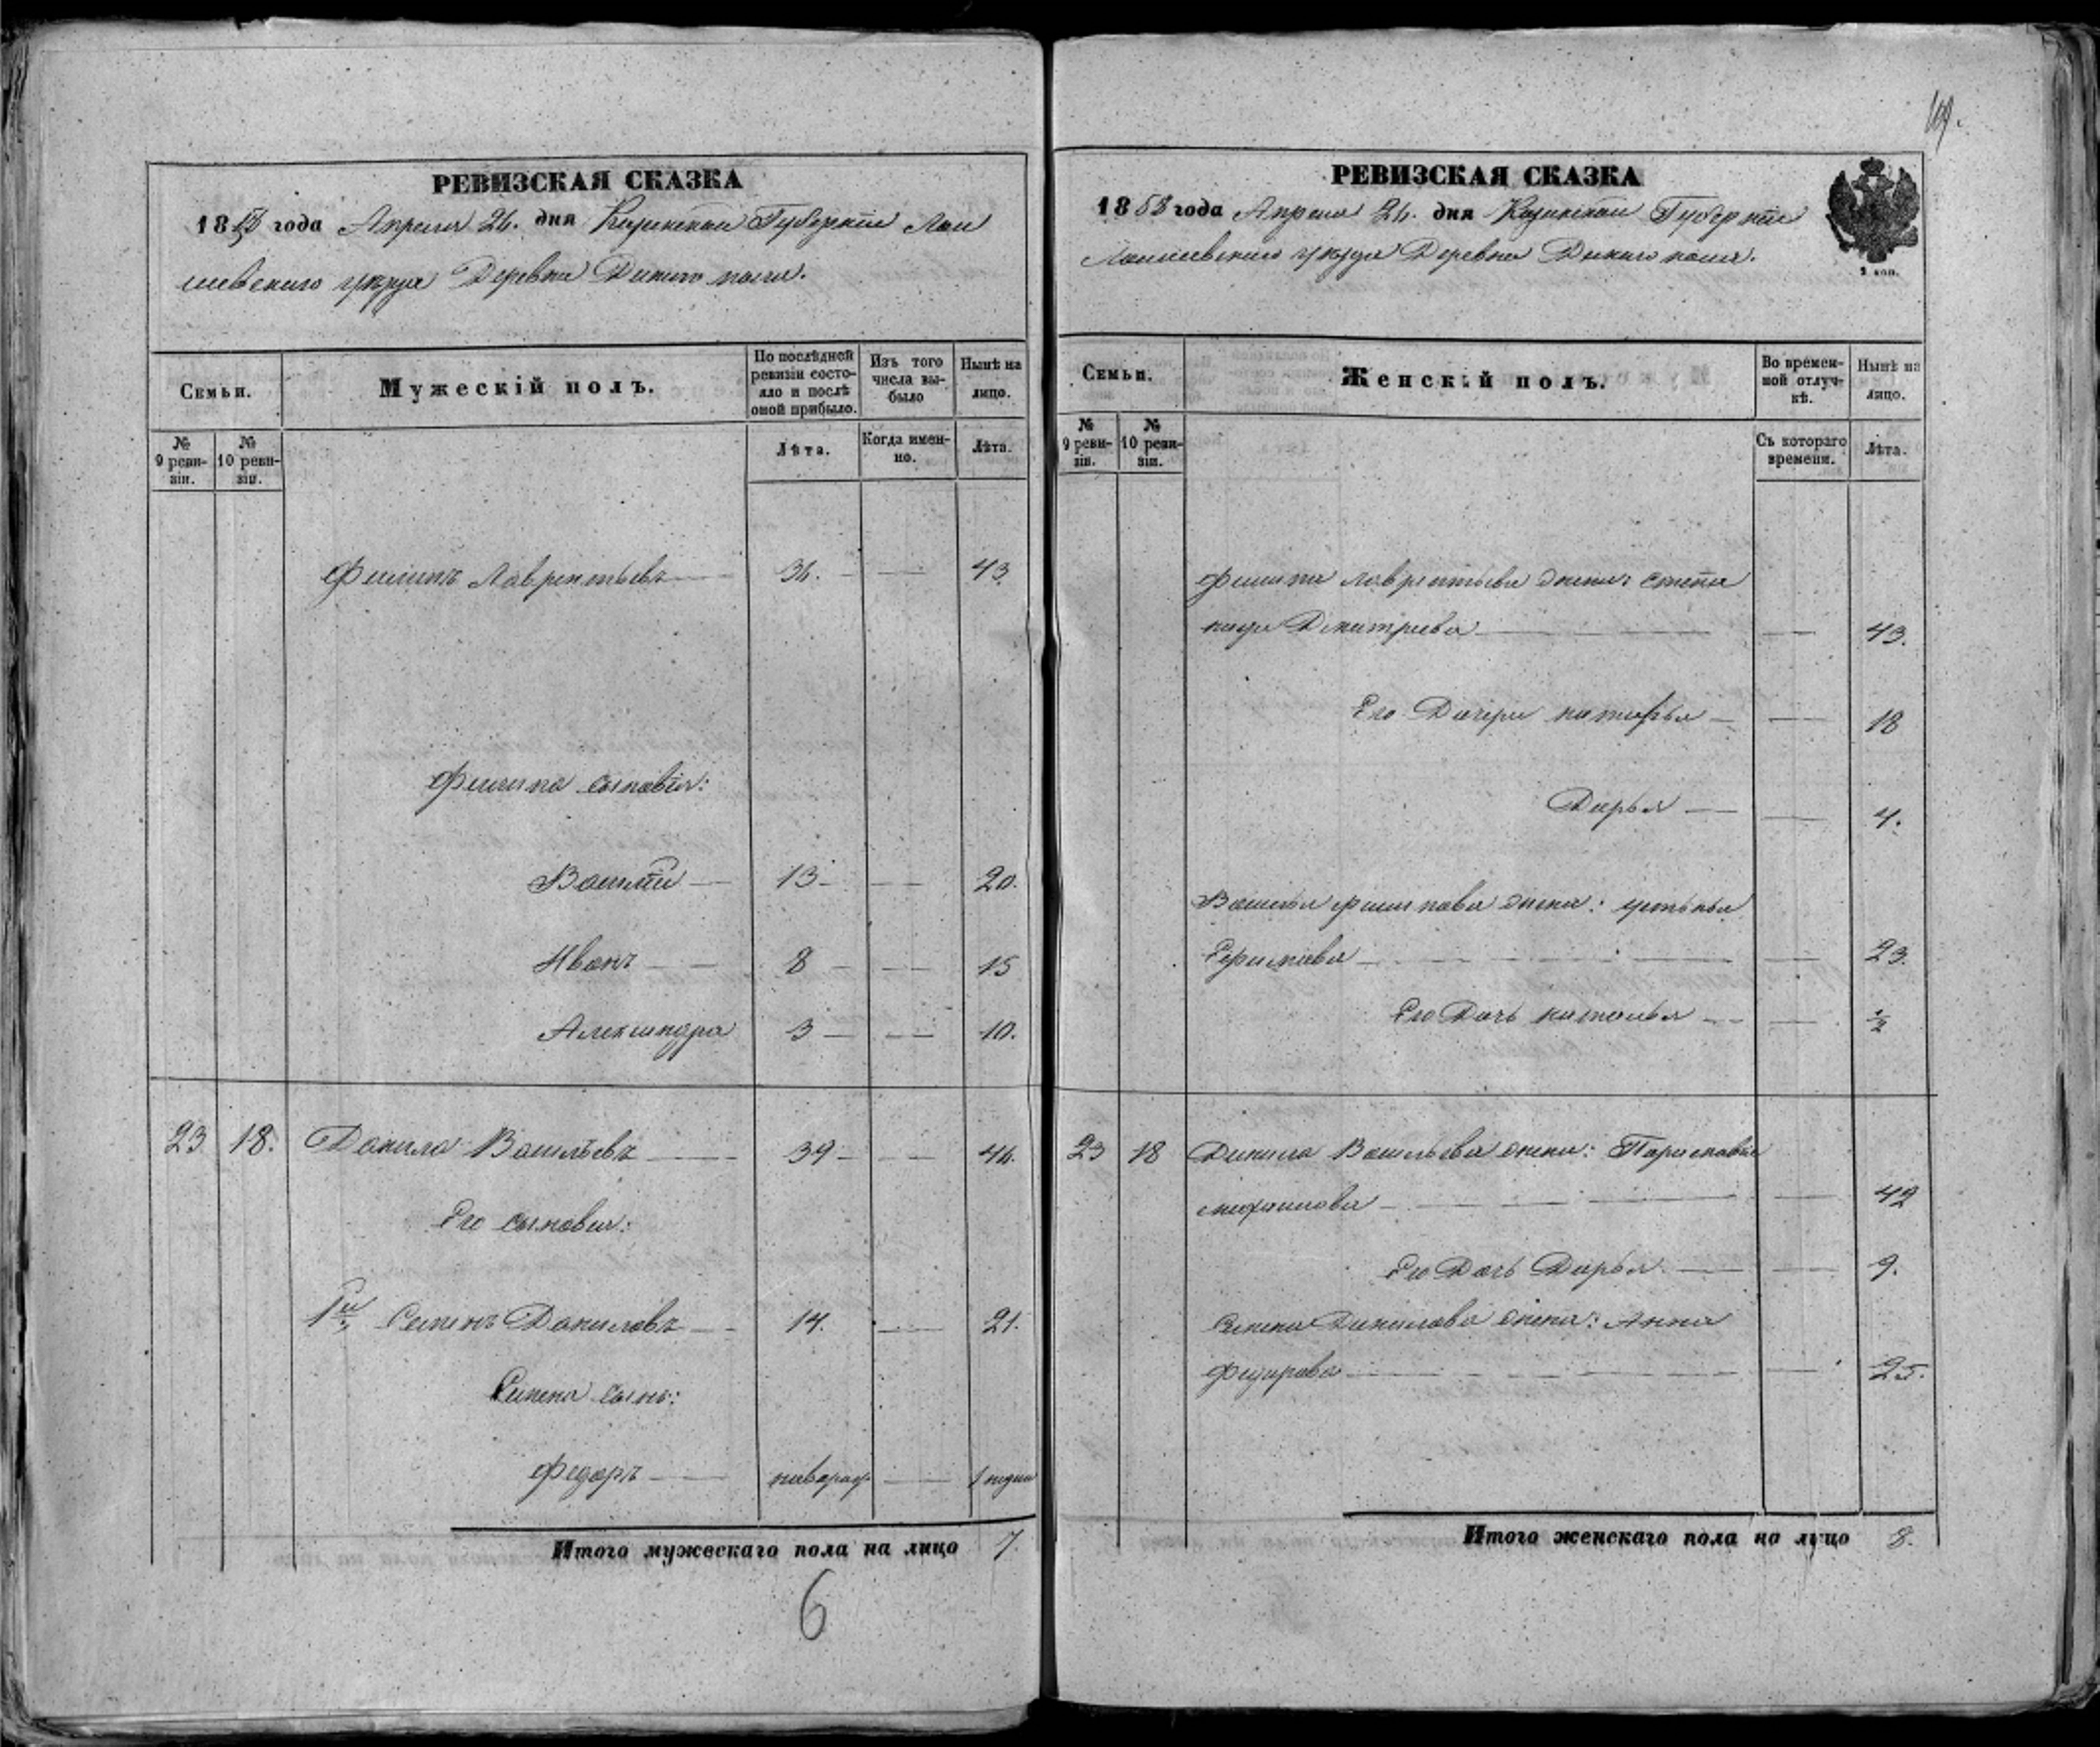 РЕВИЗСКАЯ СКАЗКА
1858 года Апреля 26. дня Казанской Губернiи Лаи
шевскаго уѣзда Деревни Дикаго поля.
Семьи.
Мужескiй полъ.
По послѣдней ревизiи состояло и послѣ оной прибыло.
Изъ того числа выбыло
Нынѣ на лицо.
№ 9 ревизiи.
№ 10 ревизiи.
Лѣта.
Когда именно.
Лѣта.
Филипъ Лаврентьевъ 36. 43.
Филипа сыновья:
Василiй 13 20.
Иванъ 8 15
Александра 3 10.
23 18. Данила Васильевъ 39 46.
Его сыновья:
1й Семенъ Даниловъ 14. 21.
Семена сынъ:
Федоръ новорож 1 недели
Итого мужескаго пола на лицо 7.
6
169.
РЕВИЗСКАЯ СКАЗКА
1858 года Апреля 26. дня Казанской Губернiи
Лаишевскаго уѣзда Деревни Дикаго поля.
2 коп.
Семьи.
Женскiй полъ.
Во временной отлучкѣ.
Нынѣ на лицо.
№ 9 ревизiи.
№ 10 ревизiи.
Съ котораго времени.
Лѣта.
Филипа Лаврентьева жена: Степа
нида Дмитрiева 43.
Его Дочери 18
Дарья 4.
Василья Филипова жена: устинья
23.
Его Дочь наталья ½
23 18 Данила Васильева жена:
михаилова 42
Его Дочь Дарья 9.
Семена Данилова жена: Анна
Федорова 25.
Итого женскаго пола на лицо 8.